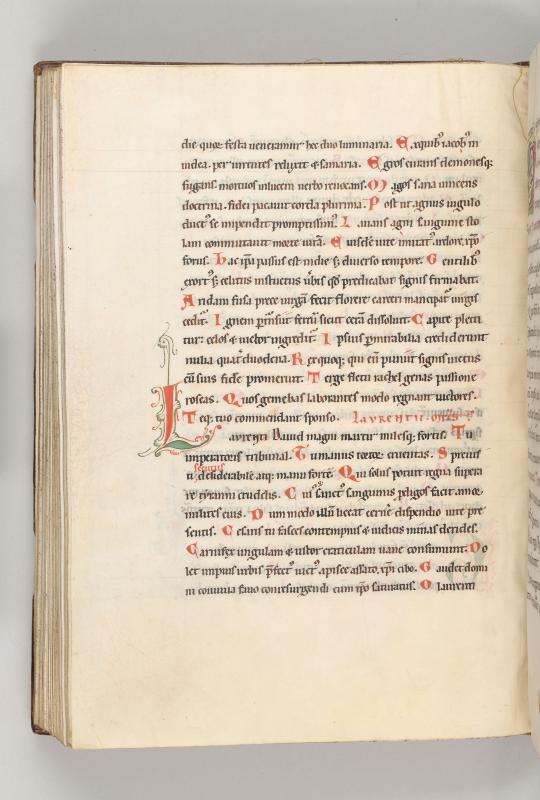 die quoꝗ festa ueneramur hec duo luminaria. E xquibꝰ iacobꝰ in
iudea. per uirentes reluxit & samaria. E gros curans demonesqꝫ
fugans. mortuos inlucem uerbo reuocans. M agos sana uincens
doctrina. fidei pacauit corda plurima. P ost ut agnus iugulo
duct se impendit promptissim. L auans agni sanguine sto
lam commutauit morte uitā. E iusdē uite imitat uelore, xp̄o
fortis. h ac ip̄a passus est indie ſꝫ diuerso tempore. G entilibꝰ
exort ſꝫ celitus instructus uerbis qđ predicabat signis firmabat.
A ridam fusa prece uirgā fecit florere carceri mancipat uirgis
ceditꝰ. I gnem ptransiit ferrū sicut cerā dissoluit. C apite plecti
tur: celos & uictor ingredit. I psius p mirabilia crediderunt
milia quat duodena. R exquoqꝫ qui eū puniit signis uictus
cū suis fidē promeruit. T erge fletu rachel genas passione
roseas. Q uos gemebas laborantes modo regnant uictores.
T eqꝫ tuo commendant sponso. LAVRENTII.
L aurenti dauid magni martir milesqꝫ fortis. T u
imperatoris tribunal. T u manus tortor cruentas. S preuisti
secutus
desiderabile atqꝫ manu fortē. Q ui solus potuit regna supera
re tyranni crudelis. C uiꝰ sanctꝰ sanguinis pdigos facit amor
milites eius. D um modo illū liceat cernē dispendio uite pre
sentis. C esaris tu fasces contempnis & iudicis minas derides.
C arnifex ungulam & ustor craticulam uane consumunt. D o
let impius urbis p̄fect uict apisce assato, xp̄i cibo. G audet domi
ni conuiua fauo conresurgendi cum xp̄o saturatus. O laurenti